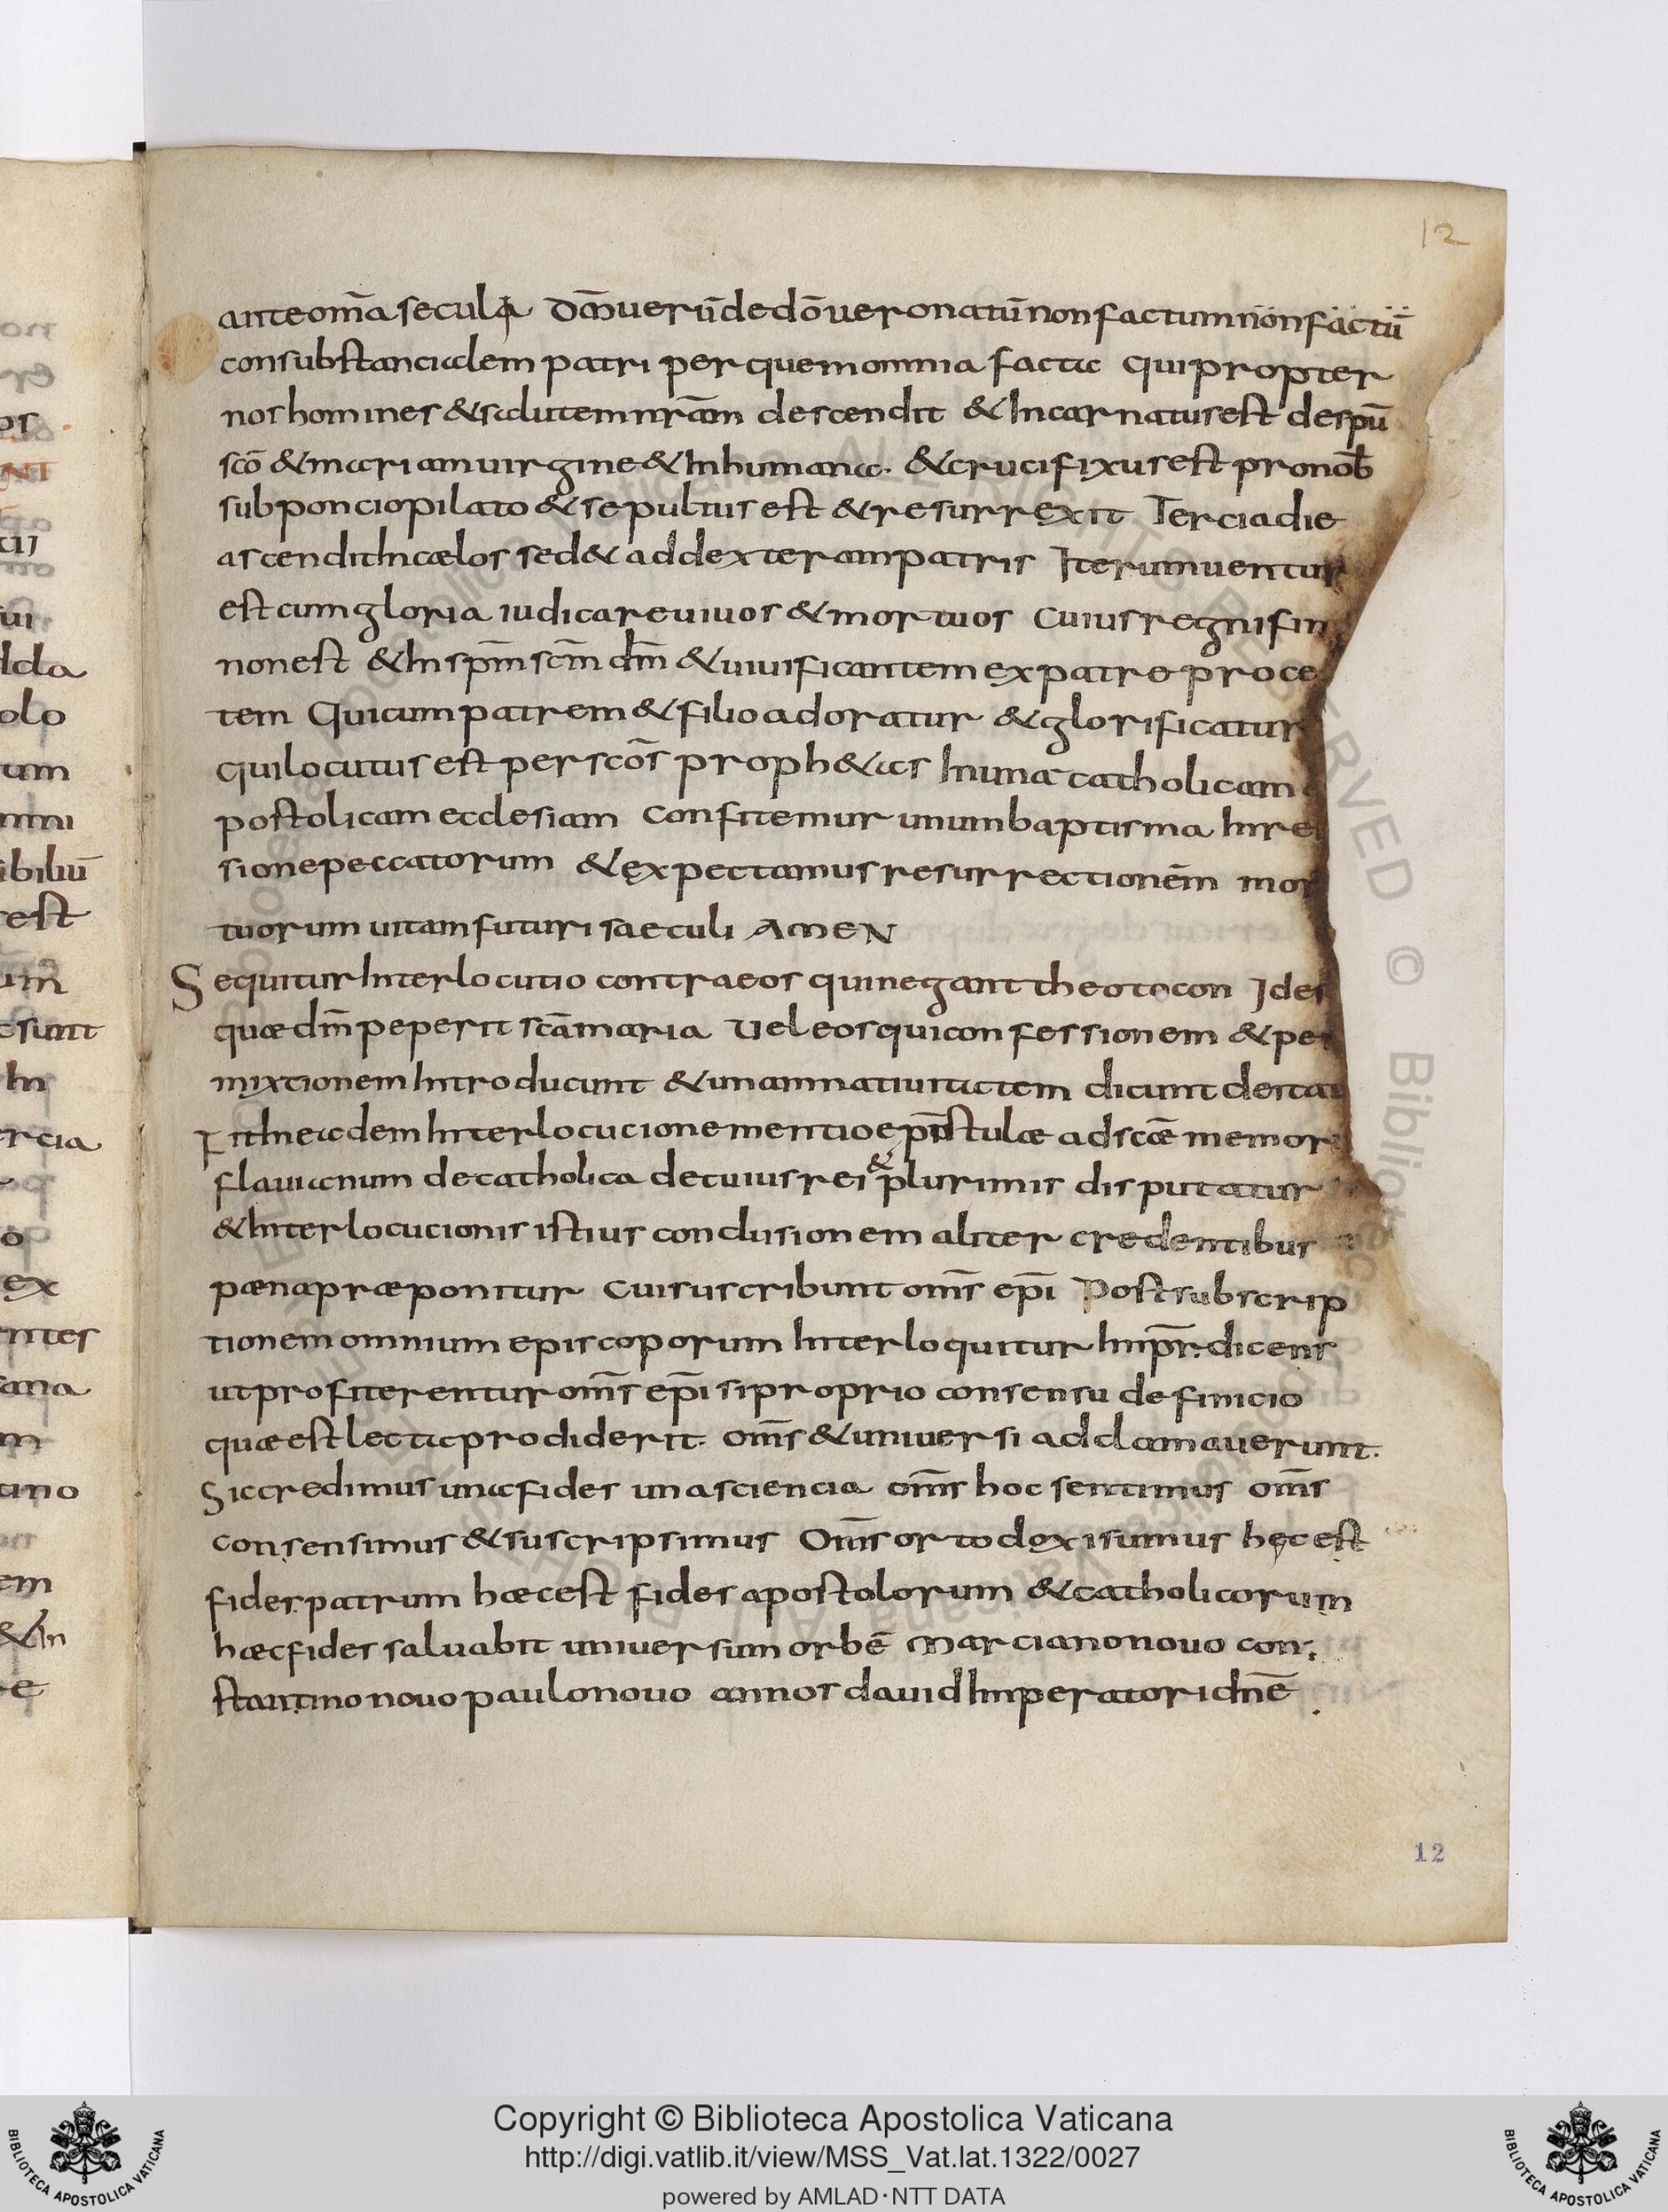 12
ante om̄a secula dm̄ uerū de dō uero natū non factum non factū
consubstancialem patri per quem omnia facta qui propter
nos homines & salutem nr̄am descendit & Incarnatus est de spū
scō & mariam uirgine & Inhumana. & crucifixus est pro nob̄
sub poncio pilato & sepultus est & resurrexit Tercia die
ascendit In cælos sed& ad dexteram patris Iterum uentur
est cum gloria iudicare uiuos & mortuos Cuius regni fin
non est & In spm̄ scm̄ dm̄ & uiuificantem ex patre proce
tem Qui cum patrem & filio adoratur & glorificatur
qui locutus est per scōs proph&as In unā catholicam
postolicam ecclesiam Confitemur unum baptisma In re
sione peccatorum & expectamus resurrectionēm mor
tuorum uitam futuri saeculi AMEN
Sequitur Interlocutio contra eos qui negant theotocon Ides
quæ dm̄ peperit scā maria Uel eos qui confessionem & per
mixtionem Introducunt & unam natiuitatem dicunt deita
Fit In eadem Interlocucione mentio epistulæ ad scāe memor
flauianum de catholica de cuius rei & plurimis disputatur
& Interlocucionis istius conclusionem aliter credentibus
pæna præponitur Cui suscribunt om̄s ep̄i Post subscrip
tionem omnium episcoporum Interloquitur Impr̄ dicens
ut profiterentur om̄s ep̄i si proprio consensu definicio
quæ est lecta prodiderit. om̄s & uniuersi adclamauerunt.
Sic credimus una fides una sciencia om̄s hoc sentimus om̄s
consensimus & suscripsimus Om̄s ortodoxi sumus hęc est
fides patrum hæc est fides apostolorum & catholicorum
hæc fides saluabit uniuersum orbē marciano nouo con
stantino nouo paulo nouo annos dauid Imperatori dnē
12
Copyright © Biblioteca Apostolica Vaticana
http://digi.vatlib.it/view/MSS_Vat.lat.1322/0027
powered by AMLAD･NTT DATA